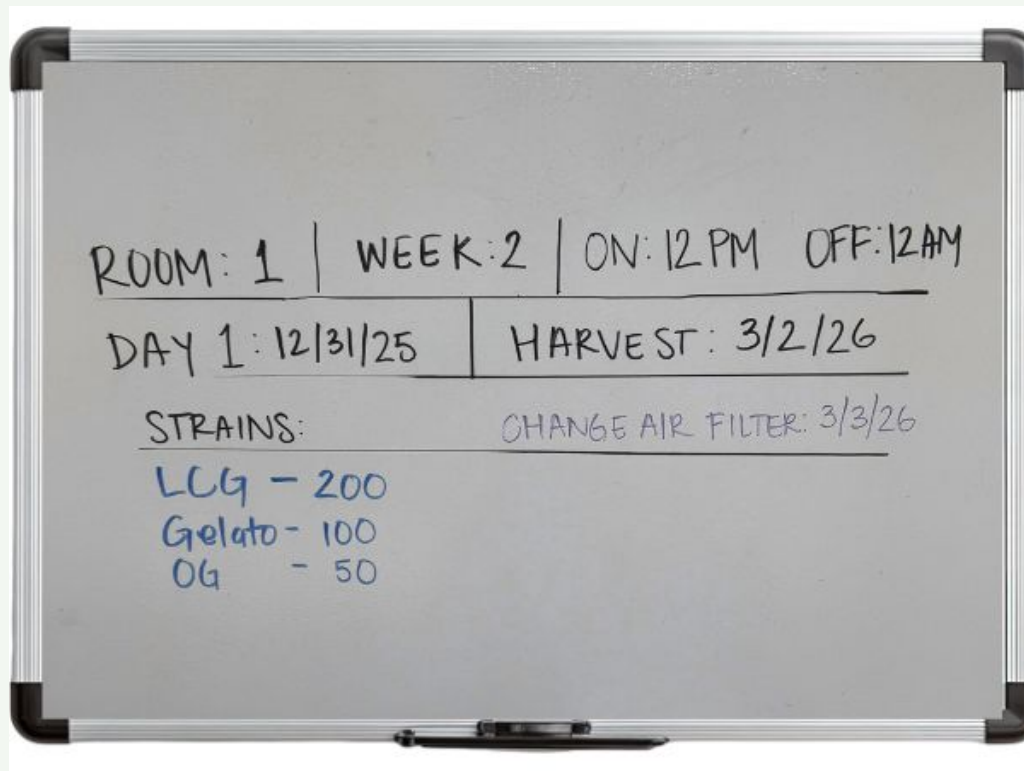 ROOM: 1 | WEEK: 2 | ON: 12 PM OFF: 12 AM
DAY 1: 12/31/25 | HARVEST: 3/2/26
STRAINS: CHANGE AIR FILTER: 3/3/26
LCG - 200
Gelato - 100
OG - 50